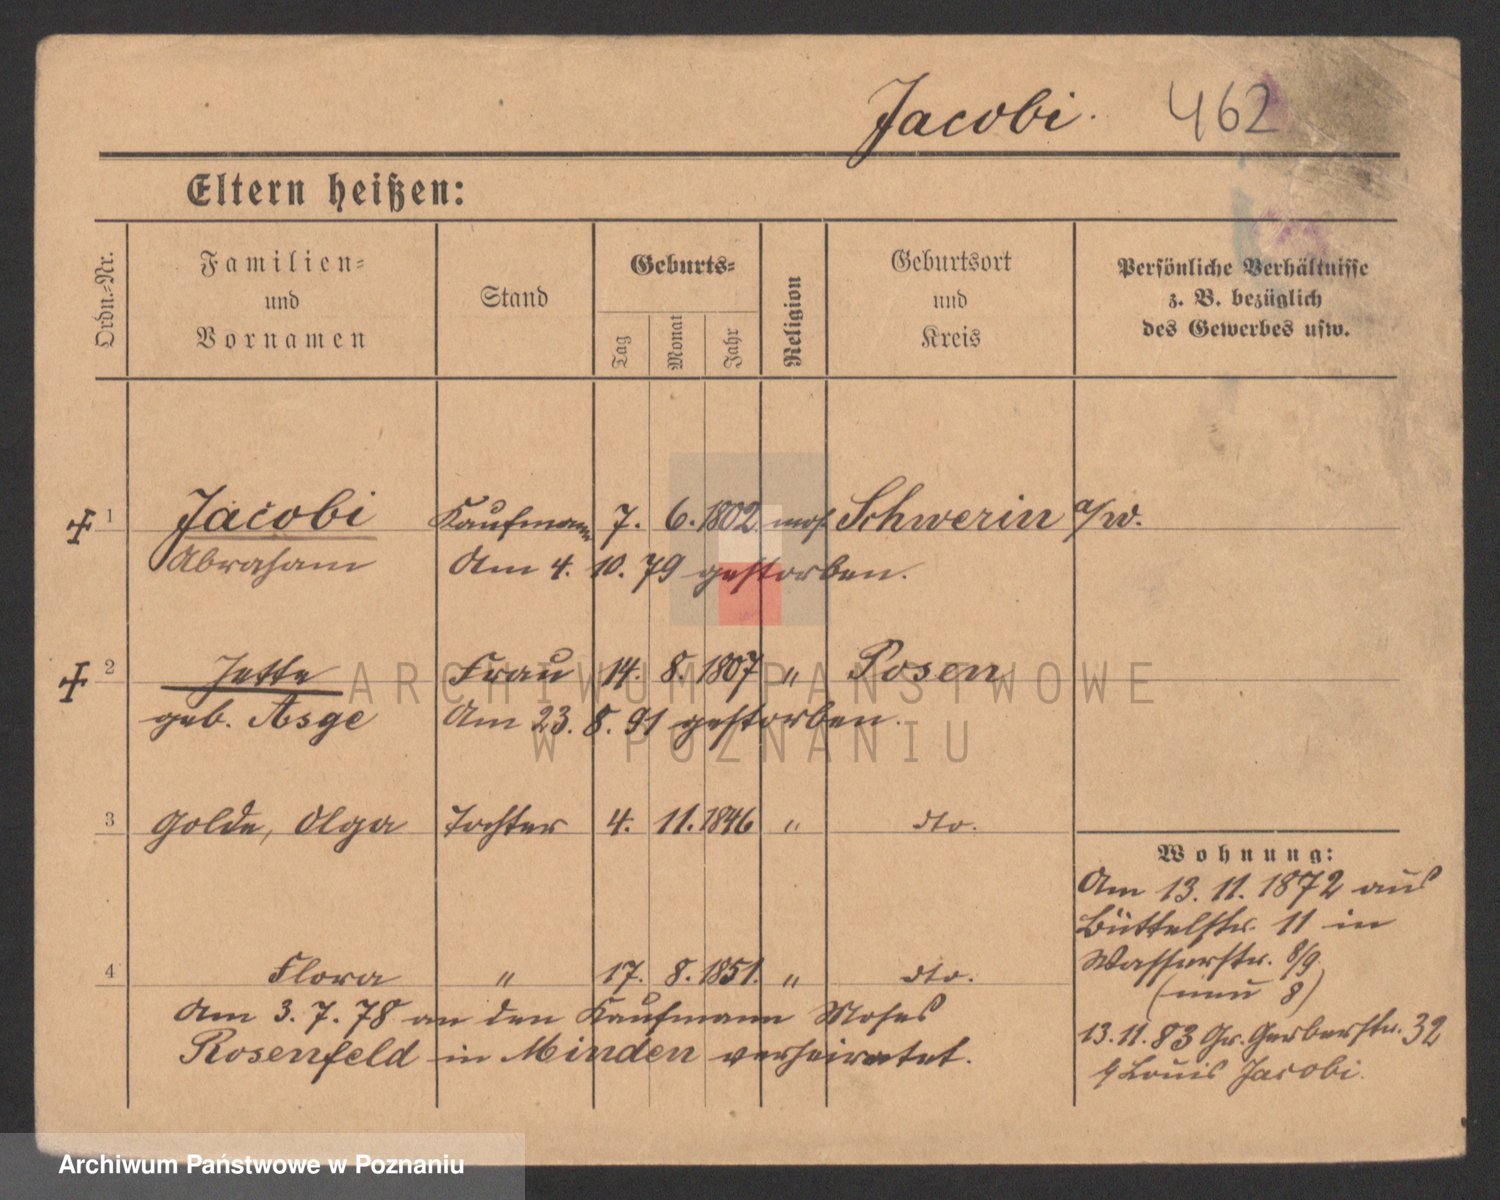 Jacobi. 462
Eltern heißen:
Ordn.-Nr.
Familien-
und
Vornamen
Stand
Geburts-
Tag
Monat
Jahr
Religion
Geburtsort
und
Kreis
Persönliche Verhältnisse
z. B. bezüglich
des Gewerbes usw.
1 Jacobi Kaufmann 7. 6. 1802 mos. Schwerin a/W.
Abraham Am 4. 10. 79 gestorben.
2 Jette Frau 14. 8. 1807 " Posen
geb. Asge Am 23. 8. 91 gestorben.
3 Golde, Olga Tochter 4. 11. 1846 " dto.
4 Flora " 17. 8. 1851. " dto.
Am 3. 7. 78 an den Kaufmann Moses
Rosenfeld in Minden verheiratet.
Wohnung:
Am 13. 11. 1872 aus
Büttelstr. 11 in
Wasserstr. 8/9.
(neu 8)
13. 11. 83 Gr. Gerberstr. 32
Louis Jacobi.
ARCHIWUM PAŃSTWOWE
W POZNANIU
Archiwum Państwowe w Poznaniu